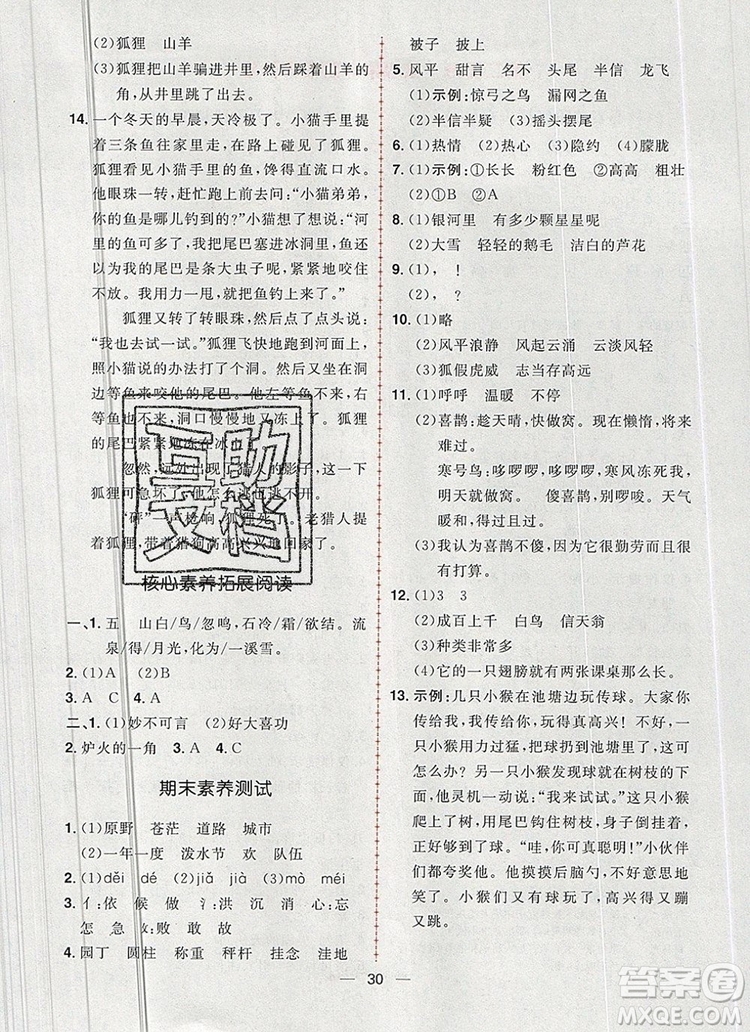 (2)狐狸　山羊
(3)狐狸把山羊骗进井里,然后踩着山羊的
角,从井里跳了出去。
14. 一个冬天的早晨,天冷极了。小猫手里提着
三条鱼往家里走,在路上碰见了狐狸。狐
狸看见小猫手里的鱼,馋得直流口水。
他眼珠一转,赶忙跑上去说:“小猫弟弟,
你的鱼是哪儿钓到的?”小猫想了想说:“河
里的鱼可多了,我把尾巴塞进冰洞里,鱼
以为我的尾巴是条大虫子呢,紧紧地咬住
不放。我用力一甩,就把鱼钓上来了。”
狐狸又转了转眼珠,然后点了点头说:
“我也去试一试。”狐狸飞快地跑到河面上,
照小猫说的办法打了个洞。果然又在洞
边等鱼来咬他的尾巴。他左等右等,
洞口慢慢地又冻上了。狐狸
的尾巴紧紧地冻在冰里了。
忽然,远处出现了猎人的影子,这一下
狐狸可急坏了,他怎么也逃不开。
“砰”一声枪响,狐狸死了。老猎人提
着狐狸,带着猎狗高高兴兴地回家了。
核心素养拓展阅读
一、1. 五　山白/鸟/忽鸣,石冷/霜/欲结。流
泉/得/月光,化为/一溪雪。
2. (1)A　(2)B
3. A　C　4. A
二、1. (1)妙不可言　(2)好大喜功
2. 炉火的一角　3. A　4. C
期末素养测试
1. (1)原野　苍茫　道路　城市
(2)一年一度　泼水节　欢　队伍
2. (1)děi　dé　(2)jiǎ　jià　(3)mò　méi
3. 亻:依　候　做　氵:洪　沉　消　心:忘
怎　急　攵:故　敢　故
4. 园丁　圆柱　称重　秤杆　挂念　洼地
被子　披上
5. 风平　甜言　名不　头尾　半信　龙飞
(1)示例:惊弓之鸟　漏网之鱼
(2)半信半疑　(3)摇头摆尾
6. (1)热情　(2)热心　(3)隐约　(4)朦胧
7. (1)示例:①长长　粉红色　②高高　粗壮
(2)①B　②A
8. (1)银河里　有多少颗星星呢
(2)大雪　轻轻的鹅毛　洁白的芦花
9. (1),　!
(2),　?
10. (1)略
(2)风平浪静　风起云涌　云淡风轻
(3)狐假虎威　志存高远
11. (1)呼呼　温暖　不停
(2)喜鹊:趁天晴,快做窝。现在懒惰,将来
难过。
寒号鸟:哆啰啰,哆啰啰,寒风冻死我,
明天就做窝。　傻喜鹊,别啰唆。天气
暖和,得过且过。
(3)我认为喜鹊不傻,因为他很勤劳而且很
有打算。
12. (1)3　3
(2)成百上千　白鸟　信天翁
(3)种类非常多
(4)它的一只翅膀就有两张课桌那么长。
13. 示例:几只小猴在池塘边玩传球。大家你
传给我,我传给你,玩得真高兴!不好,一
只小猴用力过猛,把球扔到池塘里了,怎么
办呢?另一只小猴发现球就在树枝的下方,
他灵机一动说:“我来试试。”这只小猴
爬上了树,用尾巴钩住树枝,两只手向下伸,
正好够到了球。大家都说:“哇,真厉害!”小伙伴
们都夸奖他。他摸摸后脑勺,不好意思地
笑了。小猴们又有球玩了,高兴得又蹦
又跳。
30
互助文档
答案圈
MXQE.COM